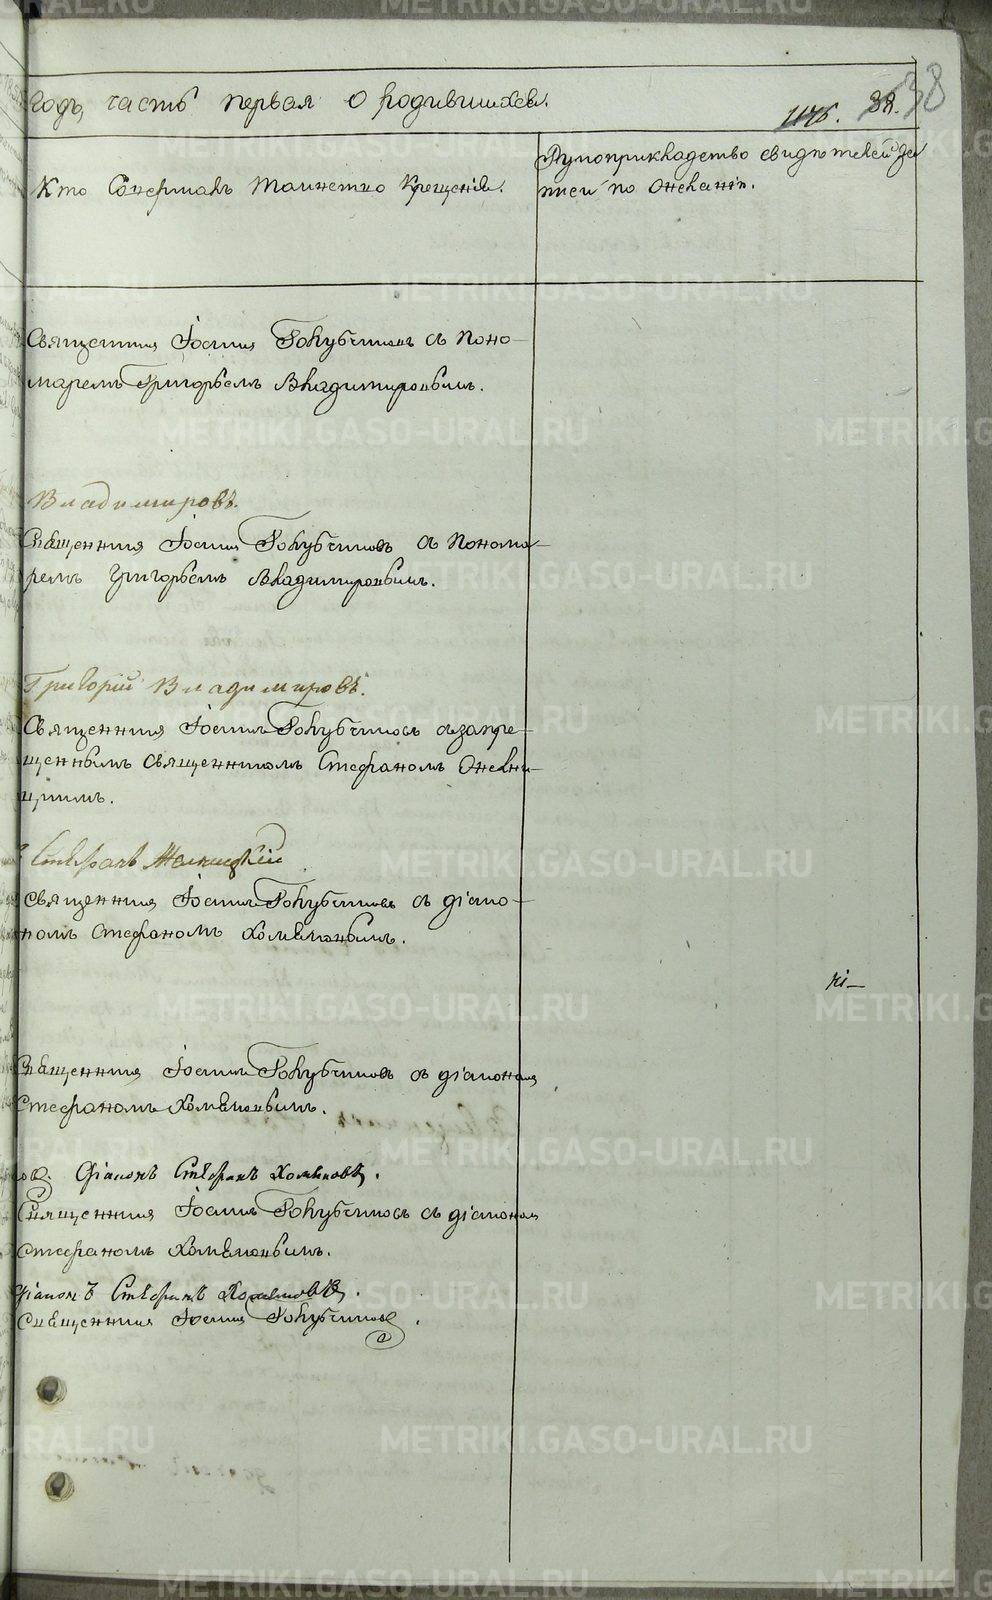 годъ, часть первая о родившихся.
38.
38
Кто совершалъ таинство крещенія.
Рукоприкладство свидѣтелей за
писи по желанію.
Священникъ Іоаннъ Голубчиковъ съ поно–
маремъ Григорьемъ Владимировымъ.
Владимировъ.
Священникъ Іоаннъ Голубчиковъ съ понома–
ремъ Григорьемъ Владимировымъ.
Григорій Владимировъ.
Священникъ Іоаннъ Голубчиковъ съ запре–
щеннымъ священникомъ Стефаномъ
Стефанъ
Священникъ Іоаннъ Голубчиковъ съ діако–
номъ Стефаномъ Хомяковымъ.
Священникъ Іоаннъ Голубчиковъ съ діакономъ
Стефаномъ Хомяковымъ.
Діаконъ Стефанъ Хомяковъ.
Священникъ Іоаннъ Голубчиковъ съ діакономъ
Стефаномъ Хомяковымъ.
Діаконъ Стефанъ Хомяковъ.
Священникъ Іоаннъ Голубчиковъ.
METRIKI.GASO-URAL.RU